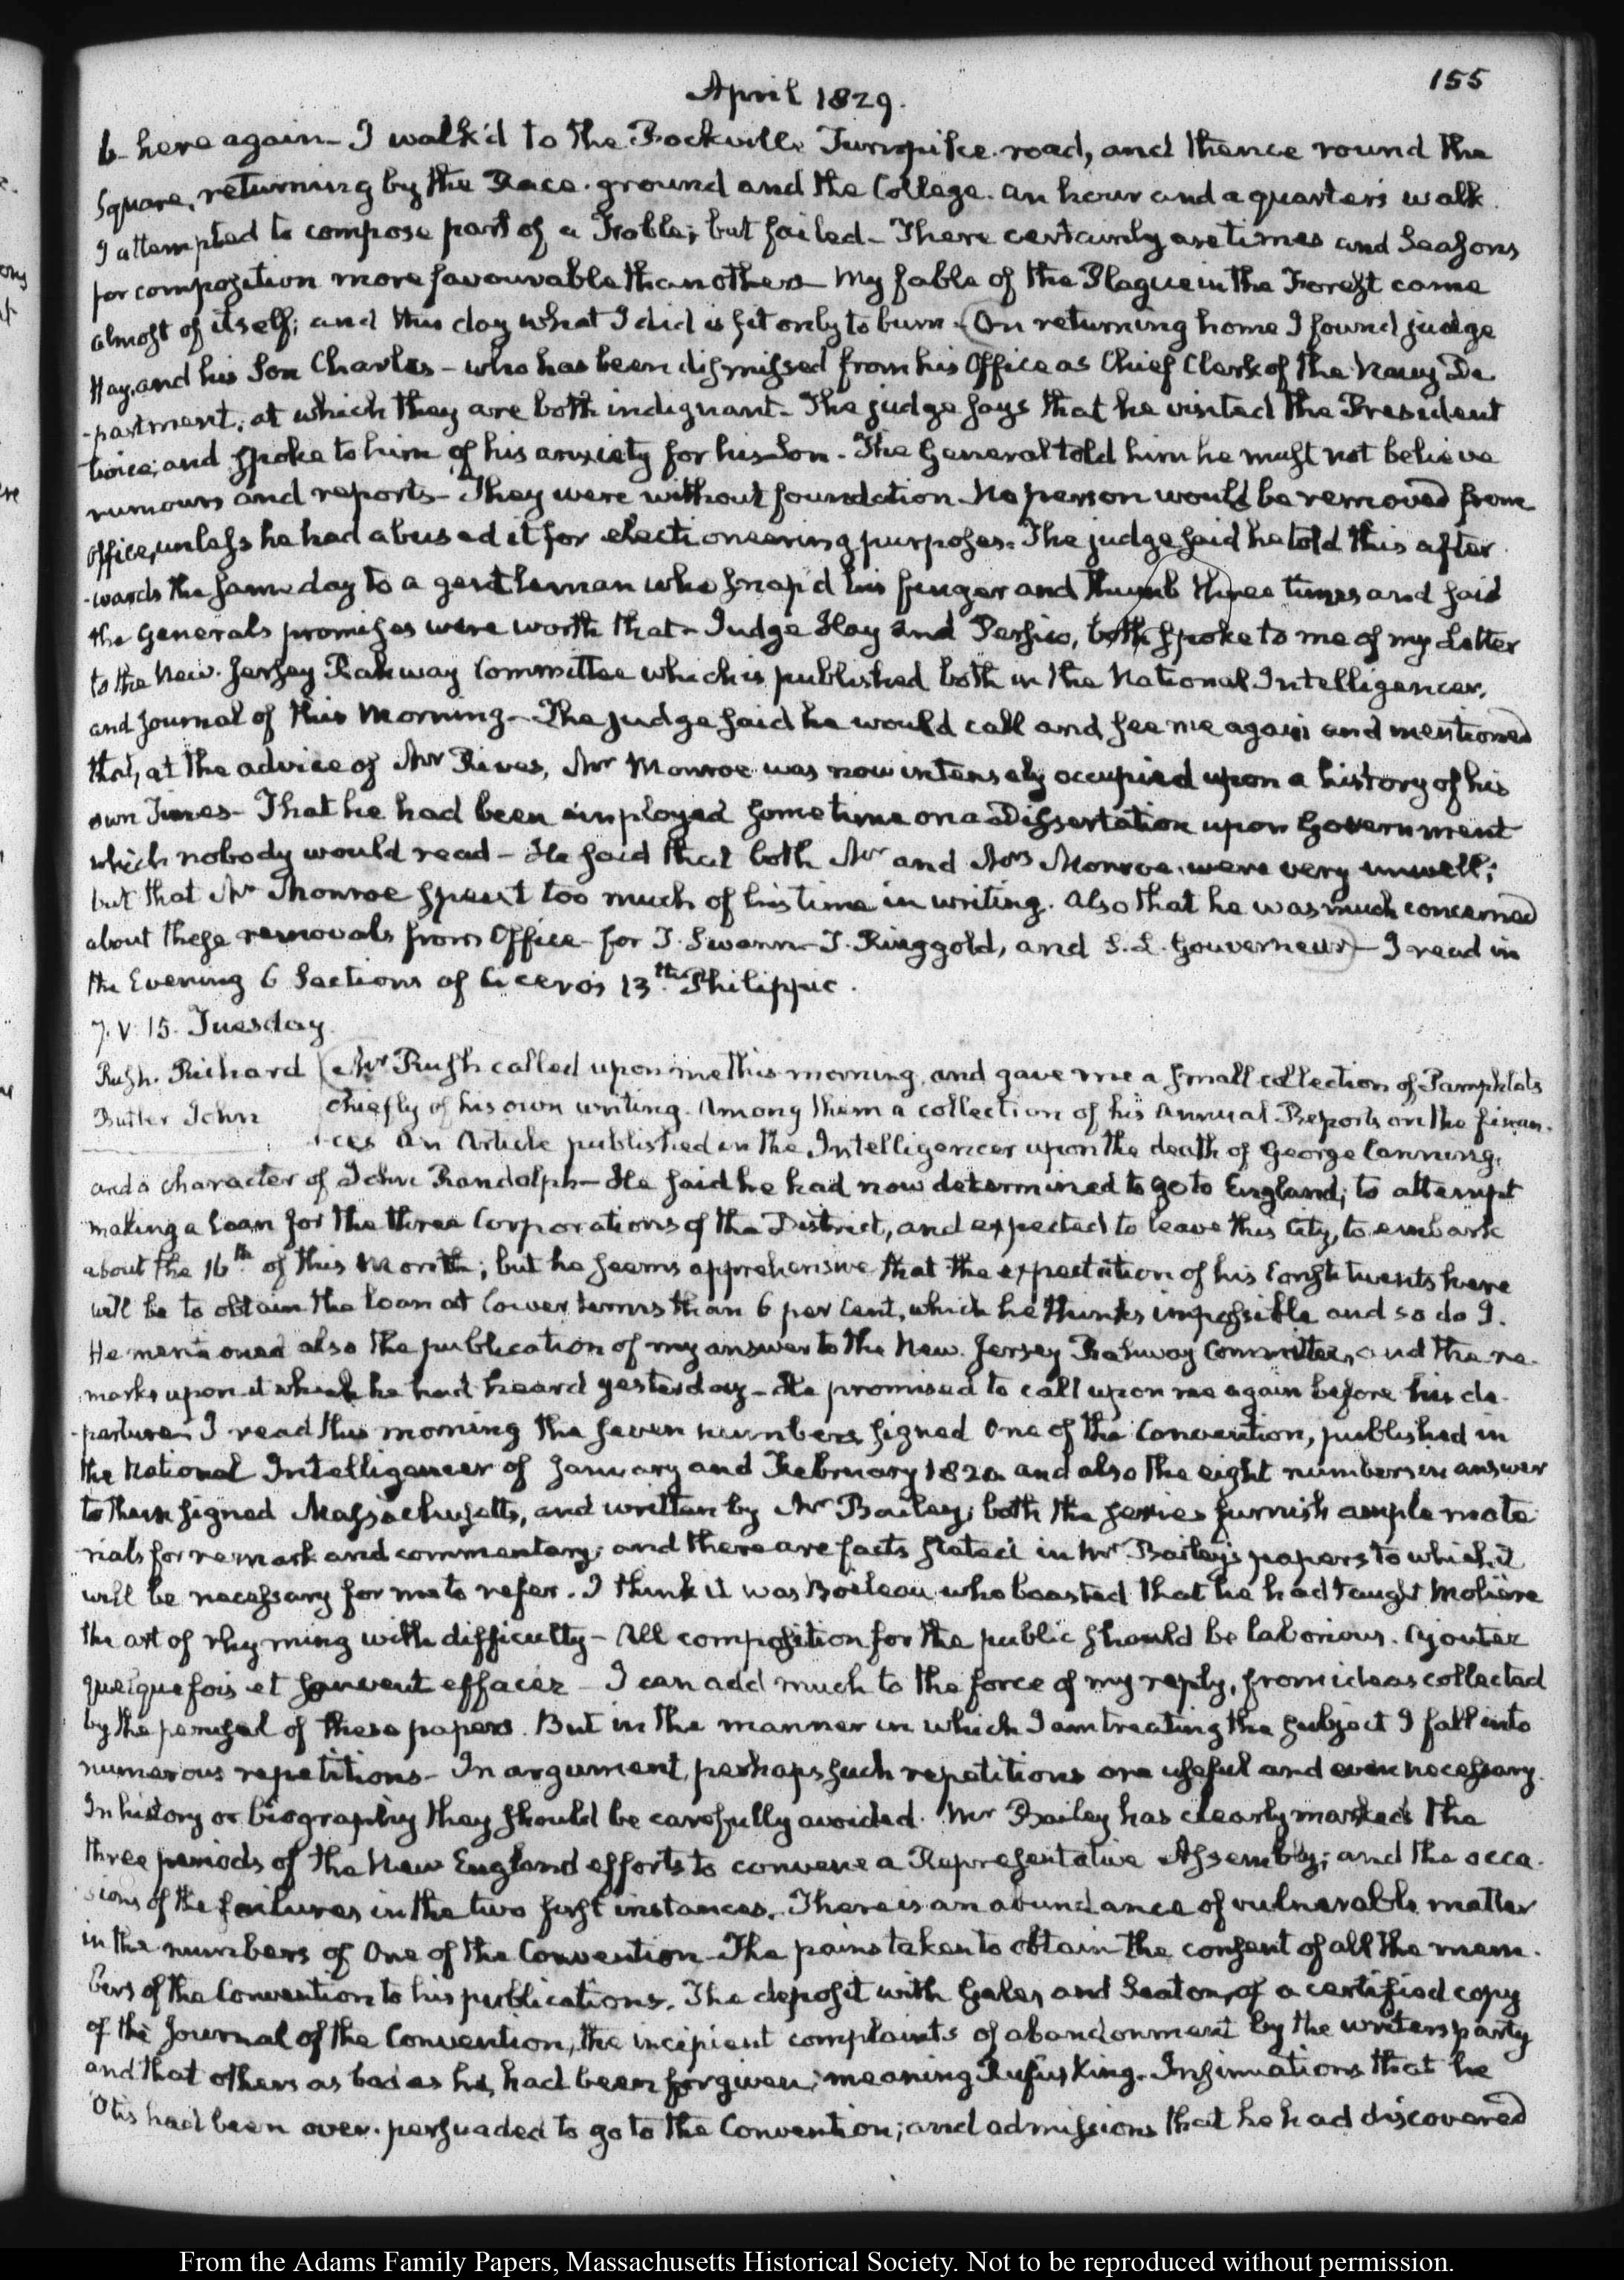 155
April 1829.
here again— I walk'd to the Rockville Turnpike road, and thence round the
Square, returning by the Race-ground and the College. an hour and a quarter's walk.
I attempted to compose part of a Fable; but failed— There certainly are times and Seasons
for composition more favourable than others— My fable of the Plague in the Forest came
almost of itself; and this day what I did is fit only to burn. On returning home I found judge
Hay, and his Son Charles— who has been dismissed from his Office as Chief Clerk of the Navy De
-partment, at which they are both indignant— The judge says that he visited the President
twice, and spoke to him of his anxiety for his Son— The General told him he must not believe
rumours and reports— They were without foundation No person would be removed from
Office, unless he had abused it for electioneering purposes. The judge said he told this after
-wards the same day to a gentleman who snap'd his finger and thumb three times and said
the Generals promises were worth that— Judge Hay and Persico, both spoke to me of my Letter
to the New-Jersey Rahway Committee which is published both in the National Intelligencer,
and Journal of this Morning— The judge said he would call and see me again and mentioned
that, at the advice of Mr Rives, Mr Monroe was now intensely occupied upon a history of his
own Times— That he had been employed sometime on a Dissertation upon Government
which nobody would read— He said that both Mr and Mrs Monroe, were very unwell;
but that Mr Monroe spent too much of his time in writing. Also that he was much concerned
about these removals from Office— for T. Swann— T. Ringgold, and S. L. Gouverneur— I read in
the Evening 6 Sections of Cicero's 13th Philippic.
7. V: 15. Tuesday.
Rush. Richard
Butler John
Mr Rush called upon me this morning, and gave me a small collection of Pamphlets
chiefly of his own writing. Among them a collection of his Annual Reports on the finan-
-ces An Article published in the Intelligencer upon the death of George Canning,
and a character of John Randolph— He said he had now determined to go to England; to attempt
making a loan for the three Corporations of the District, and expected to leave this City, to embark
about the 16th of this Month; but he seems apprehensive that the expectation of his Constituents here
will be to obtain the loan at lower terms than 6 per Cent, which he thinks impossible and so do I.
He mentioned also the publication of my answer to the New-Jersey Rahway Committee, and the re-
marks upon it which he had heard yesterday— He promised to call upon me again before his de-
-parture. I read this morning the seven numbers signed One of the Convention, published in
the National Intelligencer of January and February 1820 and also the eight numbers in answer
to them signed Massachusetts, and written by Mr Bailey; both the series furnish ample mate
-rials for remark and commentary; and there are facts stated in Mr Bailey's papers to which it
will be necessary for me to refer. I think it was Boileau who boasted that he had taught Moliere
the art of rhyming with difficulty— All composition for the public should be laborious. Ajoutez
quelquefois et souvent effacez— I can add much to the force of my reply, from ideas collected
by the perusal of these papers. But in the manner in which I am treating the subject I fall into
numerous repetitions— In argument, perhaps such repetitions are useful and even necessary.
In history or biography they should be carefully avoided. Mr Bailey has clearly marked the
three periods of the New England efforts to convene a Representative Assembly; and the occa-
-sions of the failures in the two first instances. There is an abundance of vulnerable matter
in the numbers of One of the Convention— The pains taken to obtain the consent of all the mem-
bers of the Convention to his publications. The deposit with Gales and Seaton, of a certified copy
of the Journal of the Convention, the incipient complaints of abandonment by the writers party
and that others as bad as he, had been forgiven; meaning Rufus King. Insinuations that he
Otis had been over-persuaded to go to the Convention; and admissions that he had discovered
From the Adams Family Papers, Massachusetts Historical Society. Not to be reproduced without permission.